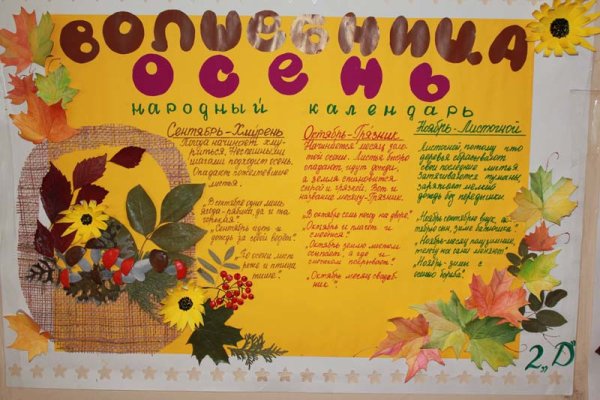 ВОЛШЕБНИЦА
ОСЕНЬ
народный календарь
Сентябрь-Хмурень
Погода начинает хму-
риться. Неслышными
шагами подходит осень.
Опадают пожелтевшие
листья.
"В сентябре одна
ягода - рябина, да и та
горькая".
"Сентябрь идёт и
дождь за собой ведёт".
"До осени лист
и птица
тише."
Октябрь-Грязник
Начинается месяц золо-
той осени. Листья быстро
опадают, идут дожди,
и земля становится
сырой и грязной. Вот и
название месяцу-Грязник.
"В октябре семь погод на дворе".
"Октябрь и плачет и
смеётся".
"Октябрь землю листом
сыплет, а где и
снежком покрывает".
"Октябрь месяц свадеб-
ник"
Ноябрь-Листочной
Листочной потому что
деревья сбрасывают
свои последние листья
Затягиваются туманы,
заряжает мелкий
дождь без передышки.
"Ноябрь сентябрю внук, ок-
тябрю сын, зиме батюшка".
"Ноябрь-месяц полузимник,
телегу на сани меняет".
"Ноябрь-зимы с
осенью борьба".
2„Д"